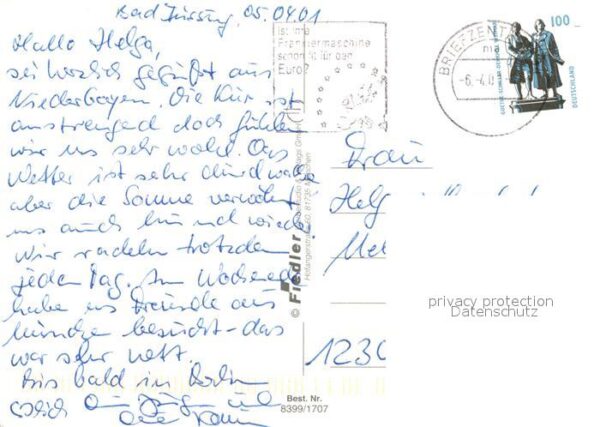 Bad Füssing, 05.04.01
Hallo Helga,
sei herzlich gegrüßt aus
Niederbayern. Die Kur ist
anstrengend doch fühlen
wir uns sehr wohl. Das
Wetter ist sehr durchwachs
aber die Sonne verwöhnt
uns auch hin und wieder
Wir radeln trotzdem
jeden Tag. Am Wochenend
haben uns Freunde aus
München besucht - das
war sehr nett.
Bis bald in Berlin
und
Ist Ihre
Frankiermaschine
schon fit für den
Euro?
BRIEFZENT
-6.-4.0
100
GOETHE-SCHILLER-DENKMAL
DEUTSCHLAND
Frau
Helg
1230
© Fiedler
81735 München
Best. Nr.
8399/1707
privacy protection
Datenschutz